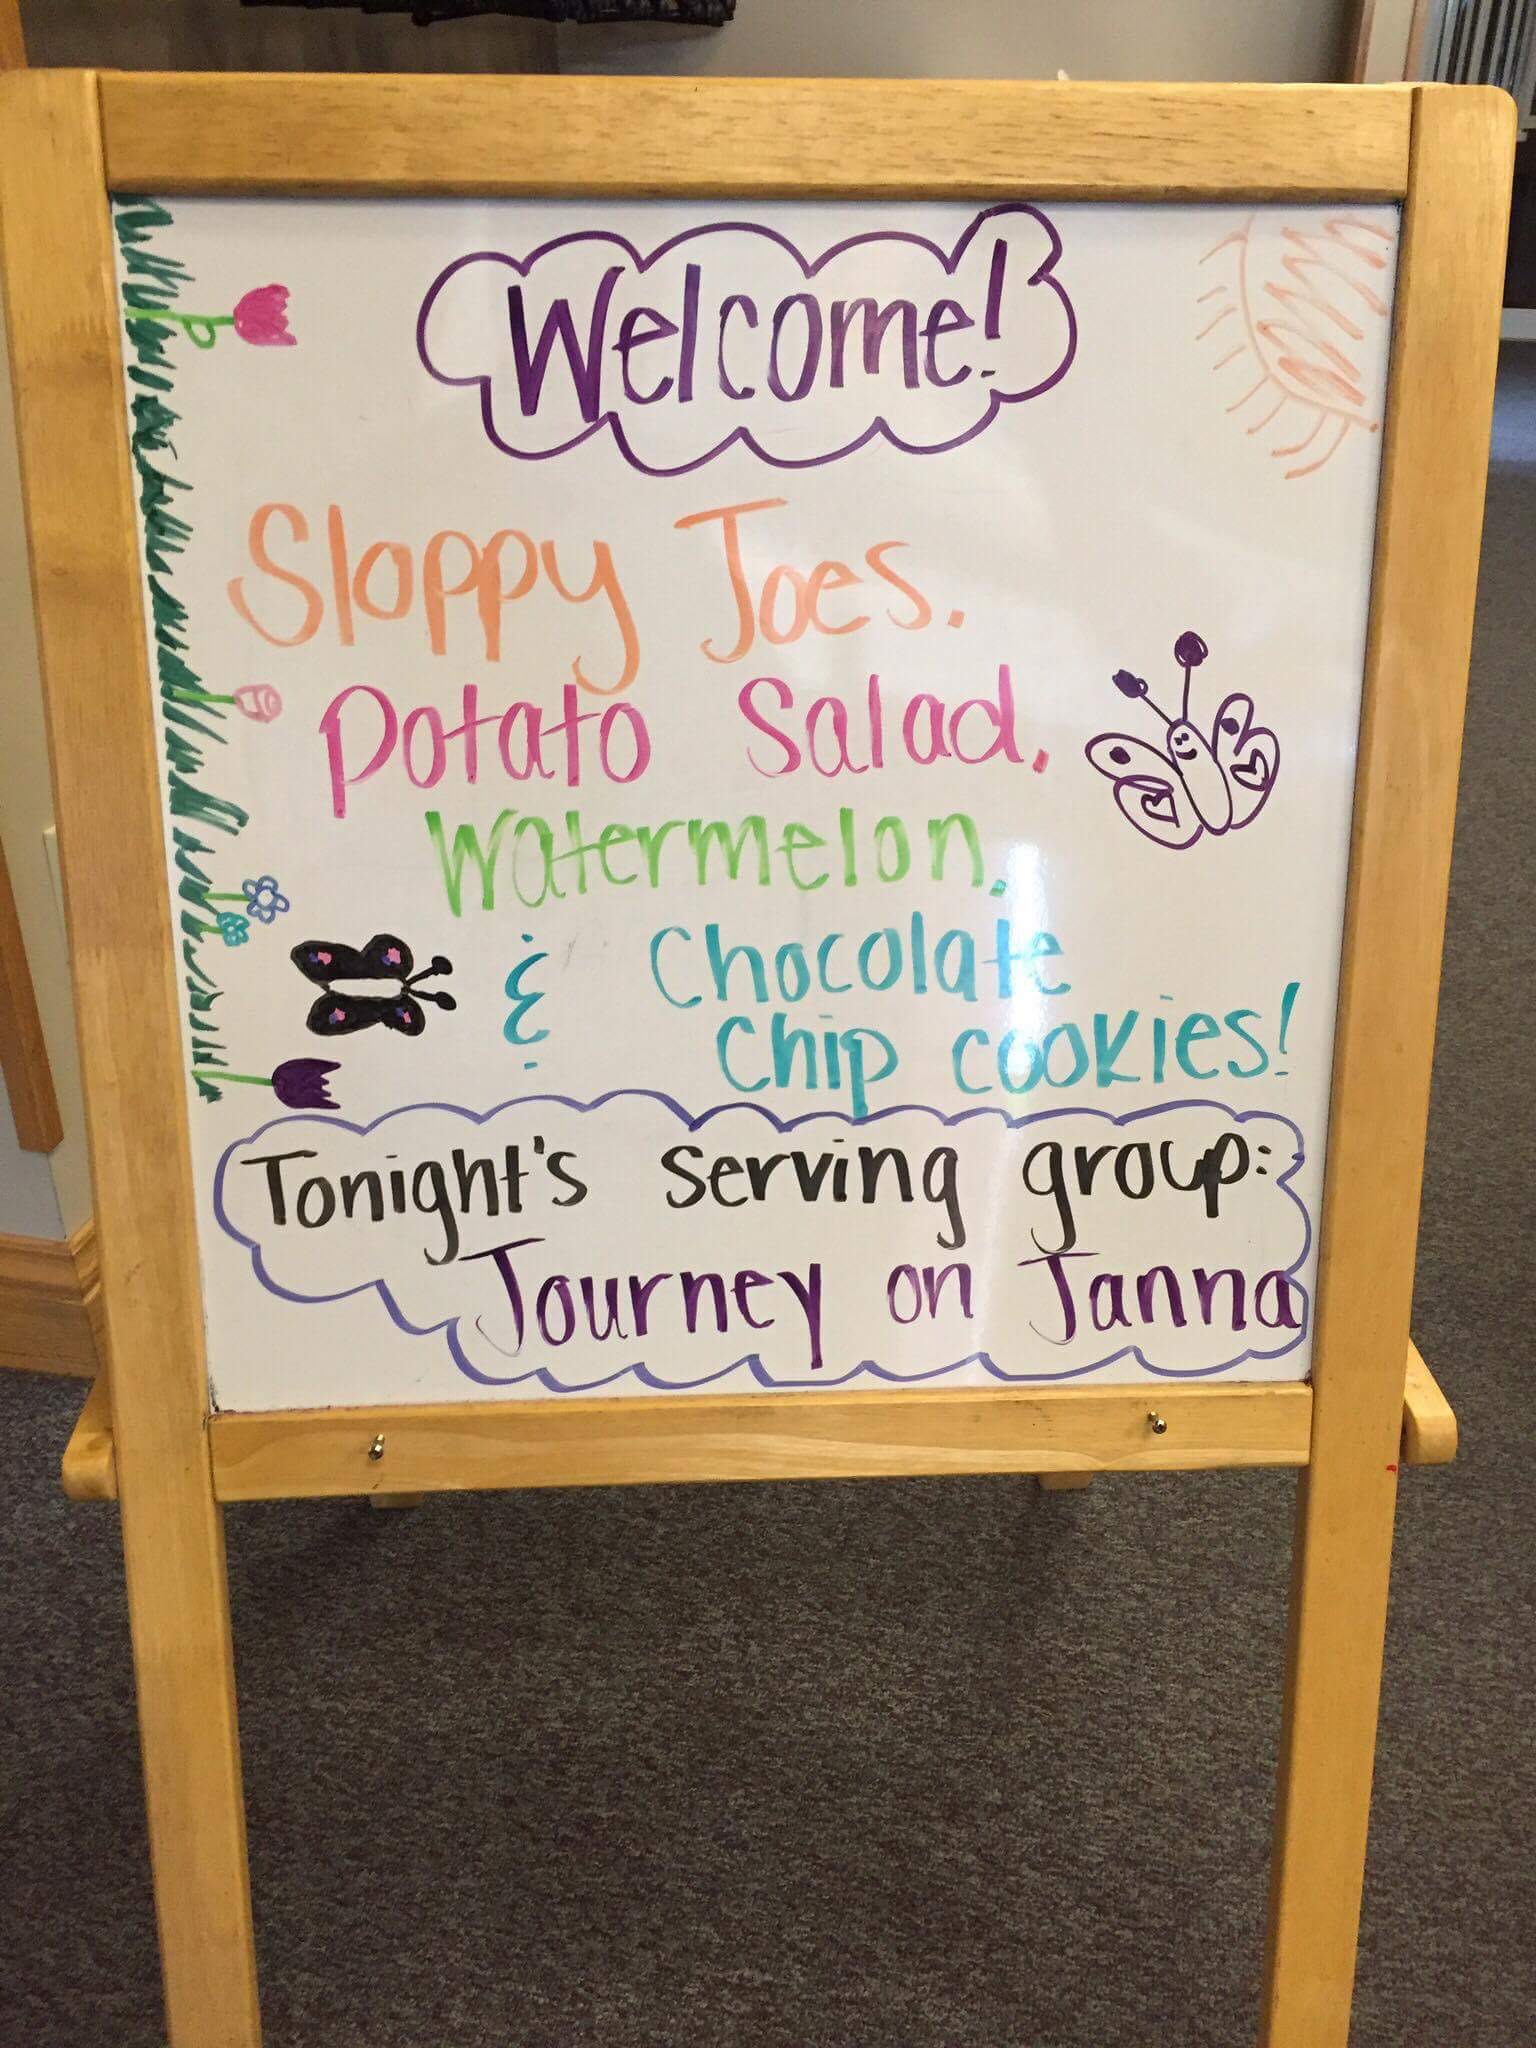 Welcome!
Sloppy Joes.
Potato Salad.
Watermelon.
& Chocolate
Chip Cookies!
Tonight's serving group:
Journey on Janna